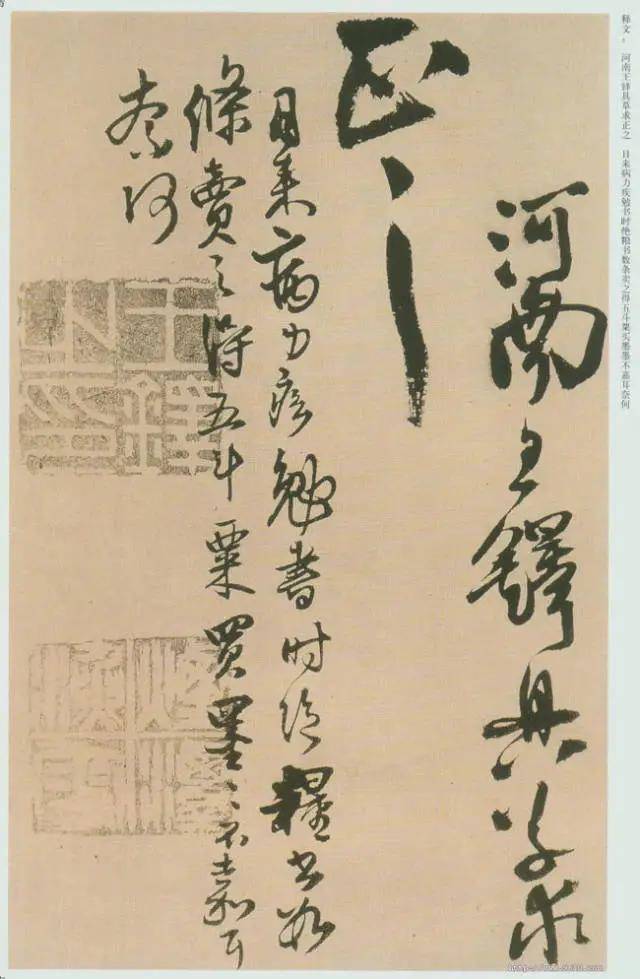 释文： 河南王铎具草求正之 日来病力疾勉书时绝粮书数条卖之得五斗粟买墨墨不嘉耳奈何
河南王鐸具草求
正之
日来病力疾勉書时绝糧书数
條賣之得五斗粟買墨〻不嘉耳
奈何
王鐸之印